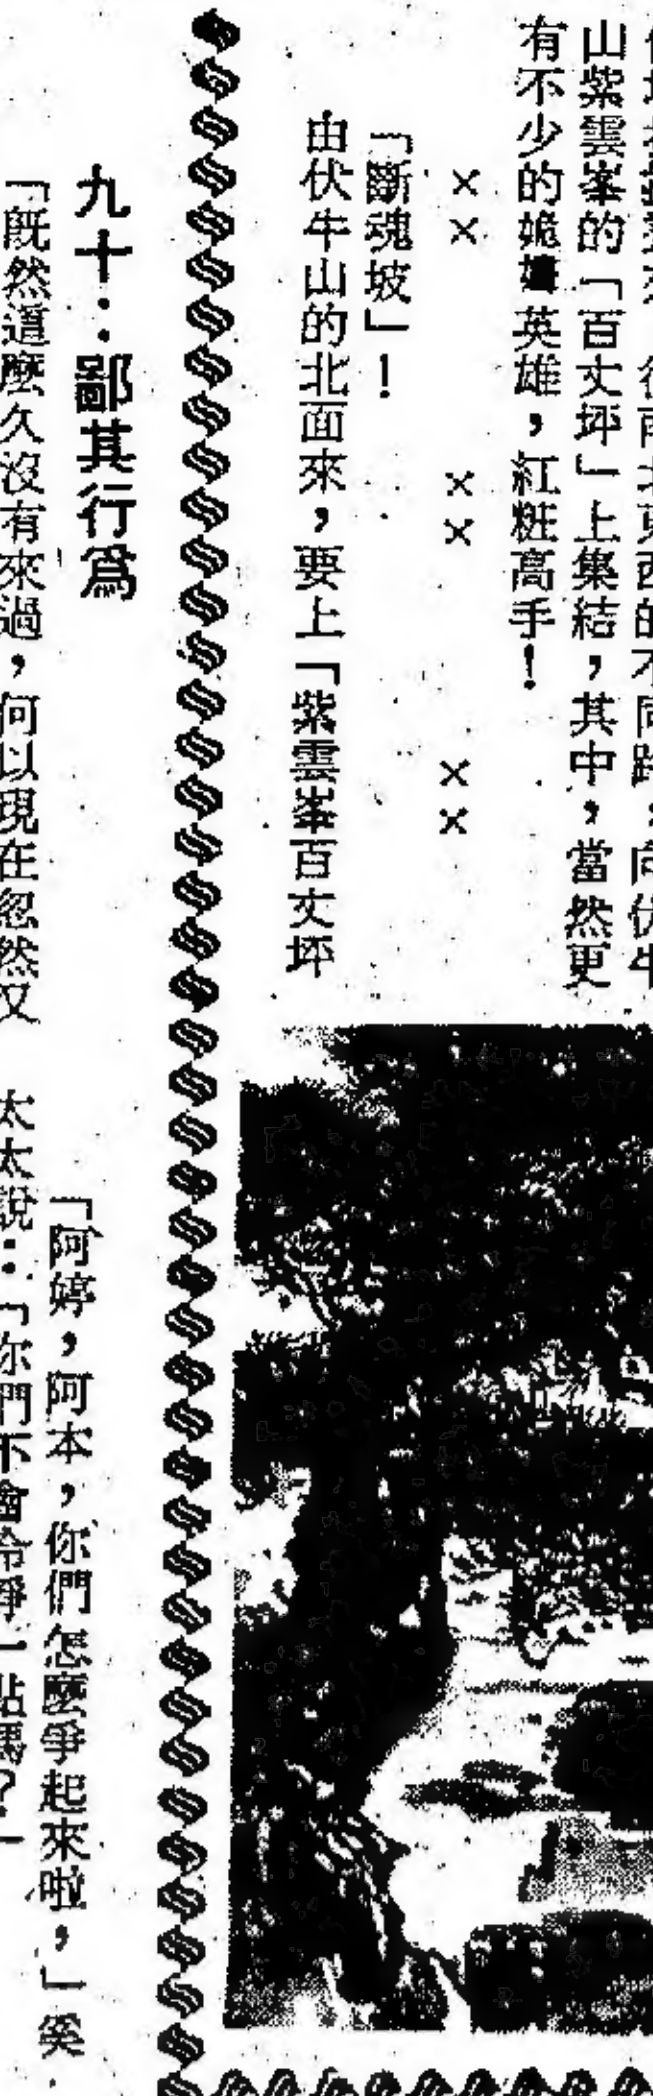 山紫雲峯的「百丈坪」上集結，其中，當然更
有不少的英雄，紅粧高手！
×× ×× ××
「斷魂坡」！
由伏牛山的北面來，要上「紫雲峯百丈坪
九十：鄙其行爲
「旣然這麼久沒有來過，何以現在忽然又
「阿婷，阿本，你們怎麼爭起來啦，」奚
太太說：「你們不會冷靜一點嗎？」